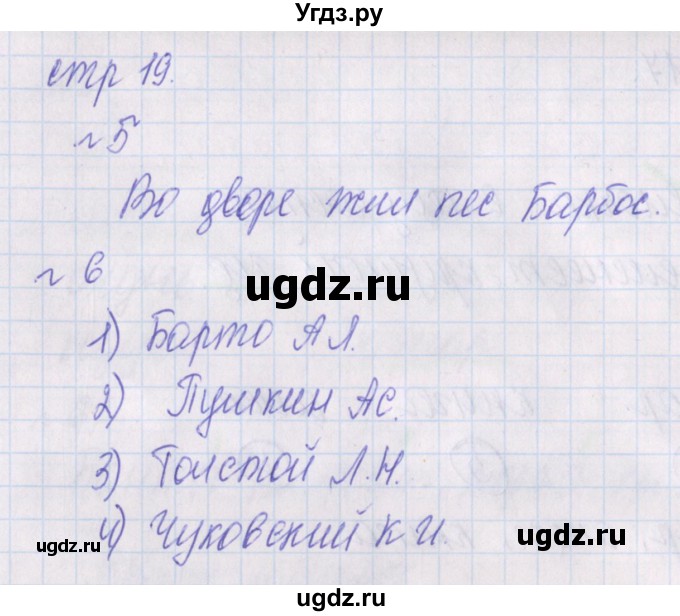 Угдз.ру
стр 19.
№5
Во дворе жил пес Барбос.
№6
ugdz.ru
1) Барто А Л.
2) Пушкин АС.
3) Толстой Л.Н.
ugdz.ru ugdz.ru
4) Чуковский К И.
ugdz.ru